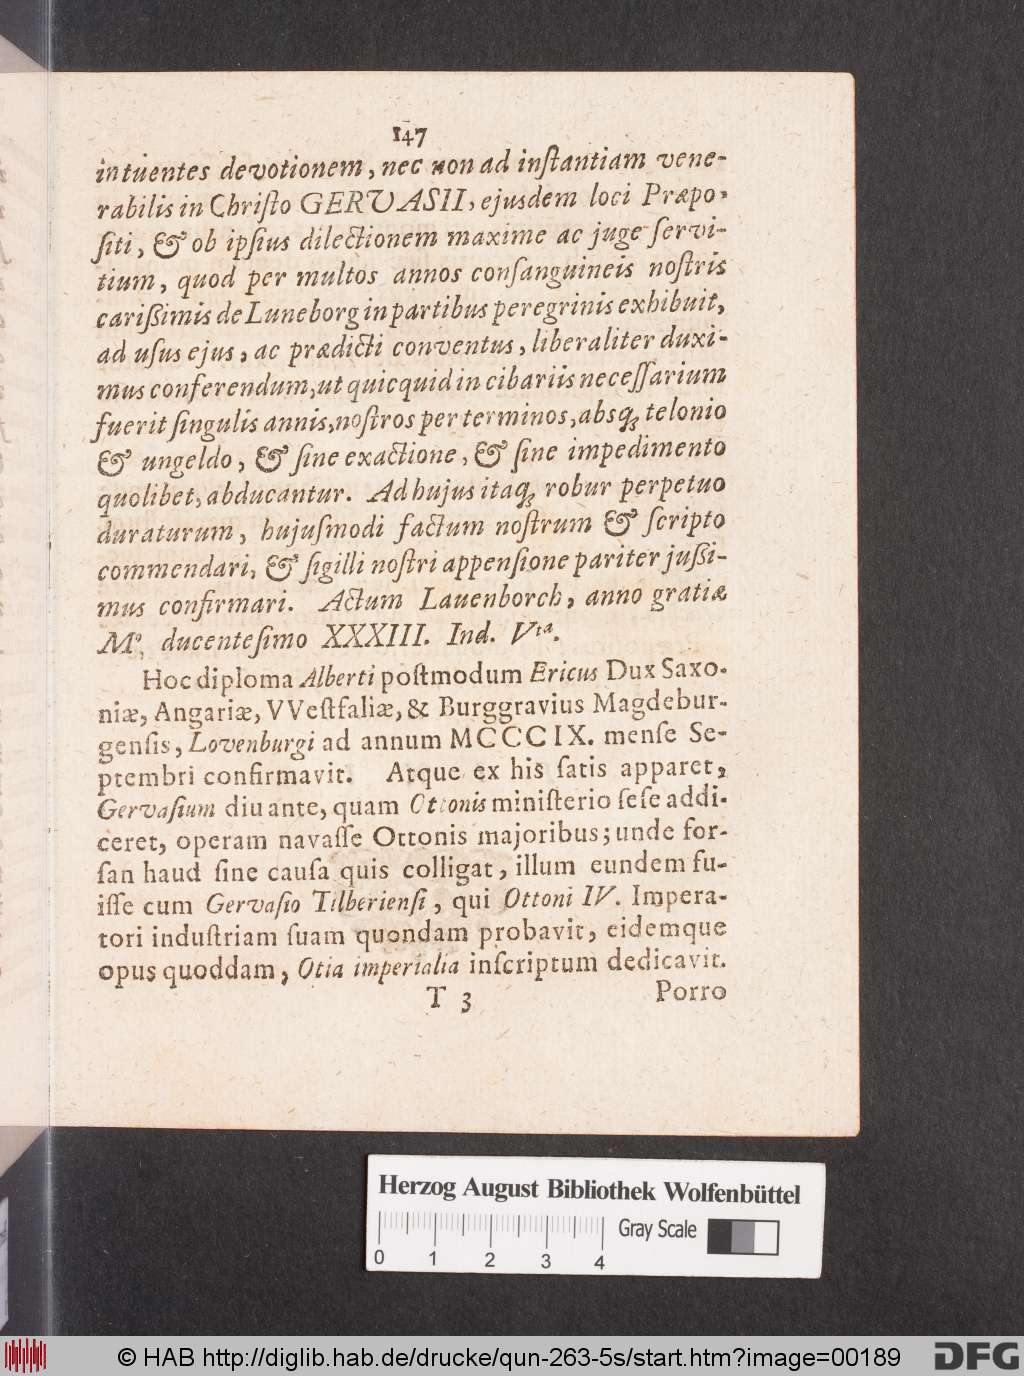 147
intuentes devotionem, nec non ad inſtantiam vene-
rabilis in Chriſto GERVASII, ejusdem loci Præpo-
ſiti, & ob ipſius dilectionem maxime ac juge ſervi-
tium, quod per multos annos conſanguineis noſtris
carißimis de Luneborg in partibus peregrinis exhibuit,
ad uſus ejus, ac prædicti conventus, liberaliter duxi-
mus conferendum, ut quicquid in cibariis neceſſarium
fuerit ſingulis annis, noſtros per terminos, absq; telonio
& ungeldo, & ſine exactione, & ſine impedimento
quolibet, abducantur. Ad hujus itaq; robur perpetuo
duraturum, hujuſmodi factum noſtrum & ſcripto
commendari, & ſigilli noſtri appenſione pariter jußi-
mus confirmari. Actum Lauenborch, anno gratiæ
Mº, ducenteſimo XXXIII. Ind. Vta.
Hoc diploma Alberti poſtmodum Ericus Dux Saxo-
niæ, Angariæ, VVeſtfaliæ, & Burggravius Magdebur-
genſis, Lovenburgi ad annum MCCCIX. menſe Se-
ptembri confirmavit. Atque ex his ſatis apparet,
Gervaſium diu ante, quam Ottonis miniſterio ſeſe addi-
ceret, operam navaſſe Ottonis majoribus; unde for-
ſan haud ſine cauſa quis colligat, illum eundem fu-
iſſe cum Gervaſio Tilberienſi, qui Ottoni IV. Impera-
tori induſtriam ſuam quondam probavit, eidemque
opus quoddam, Otia imperialia inſcriptum dedicavit.
T 3 Porro
Herzog August Bibliothek Wolfenbüttel
Gray Scale
0 1 2 3 4
© HAB http://diglib.hab.de/drucke/qun-263-5s/start.htm?image=00189 DFG